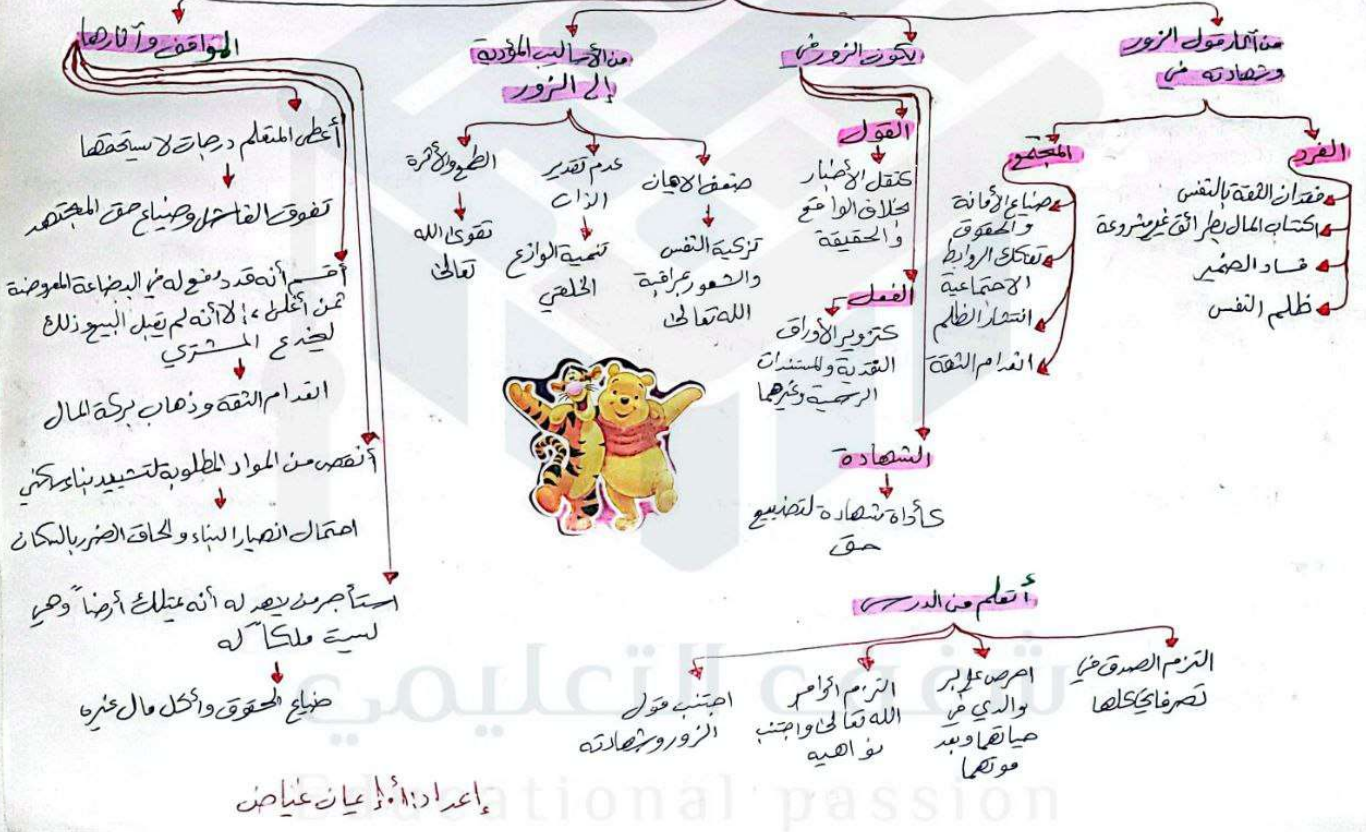 من آثار قول الزور
وشهادته في
الفرد
فقدان الثقة بالنفس
اكتساب المال بطرائق غير مشروعة
فساد الضمير
ظلم النفس
المجتمع
ضياع الأمانة
والحقوق
تفكك الروابط
الاجتماعية
انتشار الظلم
انعدام الثقة
يكون الزور في
القول
كنقل الأخبار
بخلاف الواقع
والحقيقة
الفعل
كتزوير الأوراق
النقدية والمستندات
الرسمية وغيرهما
الشهادة
كأداة شهادة لتضييع
حق
من الأسالب المؤدية
إلى الزور
ضعف الايمان
تزكية النفس
والشعور بمراقبة
الله تعالى
عدم تقدير
الذات
تنمية الوازع
الخلقي
الطمع والأثرة
تقوى الله
تعالى
المواقف وآثارها
أعطى المتعلم درجات لا يستحقها
تفوق الفاشل وضياع حق المجتهد
أقسم أنه قد دفع له في البضاعة المعروضة
ثمن أغلى، إلا أنه لم يقبل البيع وذلك
ليخدع المشتري
انعدام الثقة وذهاب بركة المال
أنقص من المواد المطلوبة لتشييد بناء سكني
احتمال انهيار البناء ولحاق الضرر بالسكان
استأجر من يشهد له أنه يمتلك أرضاً وهي
ليست ملكاً له
ضياع الحقوق وأكل مال غيره
أتعلم من الدرس
التزم الصدق في
تصرفاتي كلها
احرص على بر
والدي في
حياتهما وبعد
موتهما
التزم أوامر
الله تعالى واجتنب
نواهيه
اجتنب قول
الزور وشهادته
شغف التعليمي
Educational passion
إعداد: أ. إيمان عياض